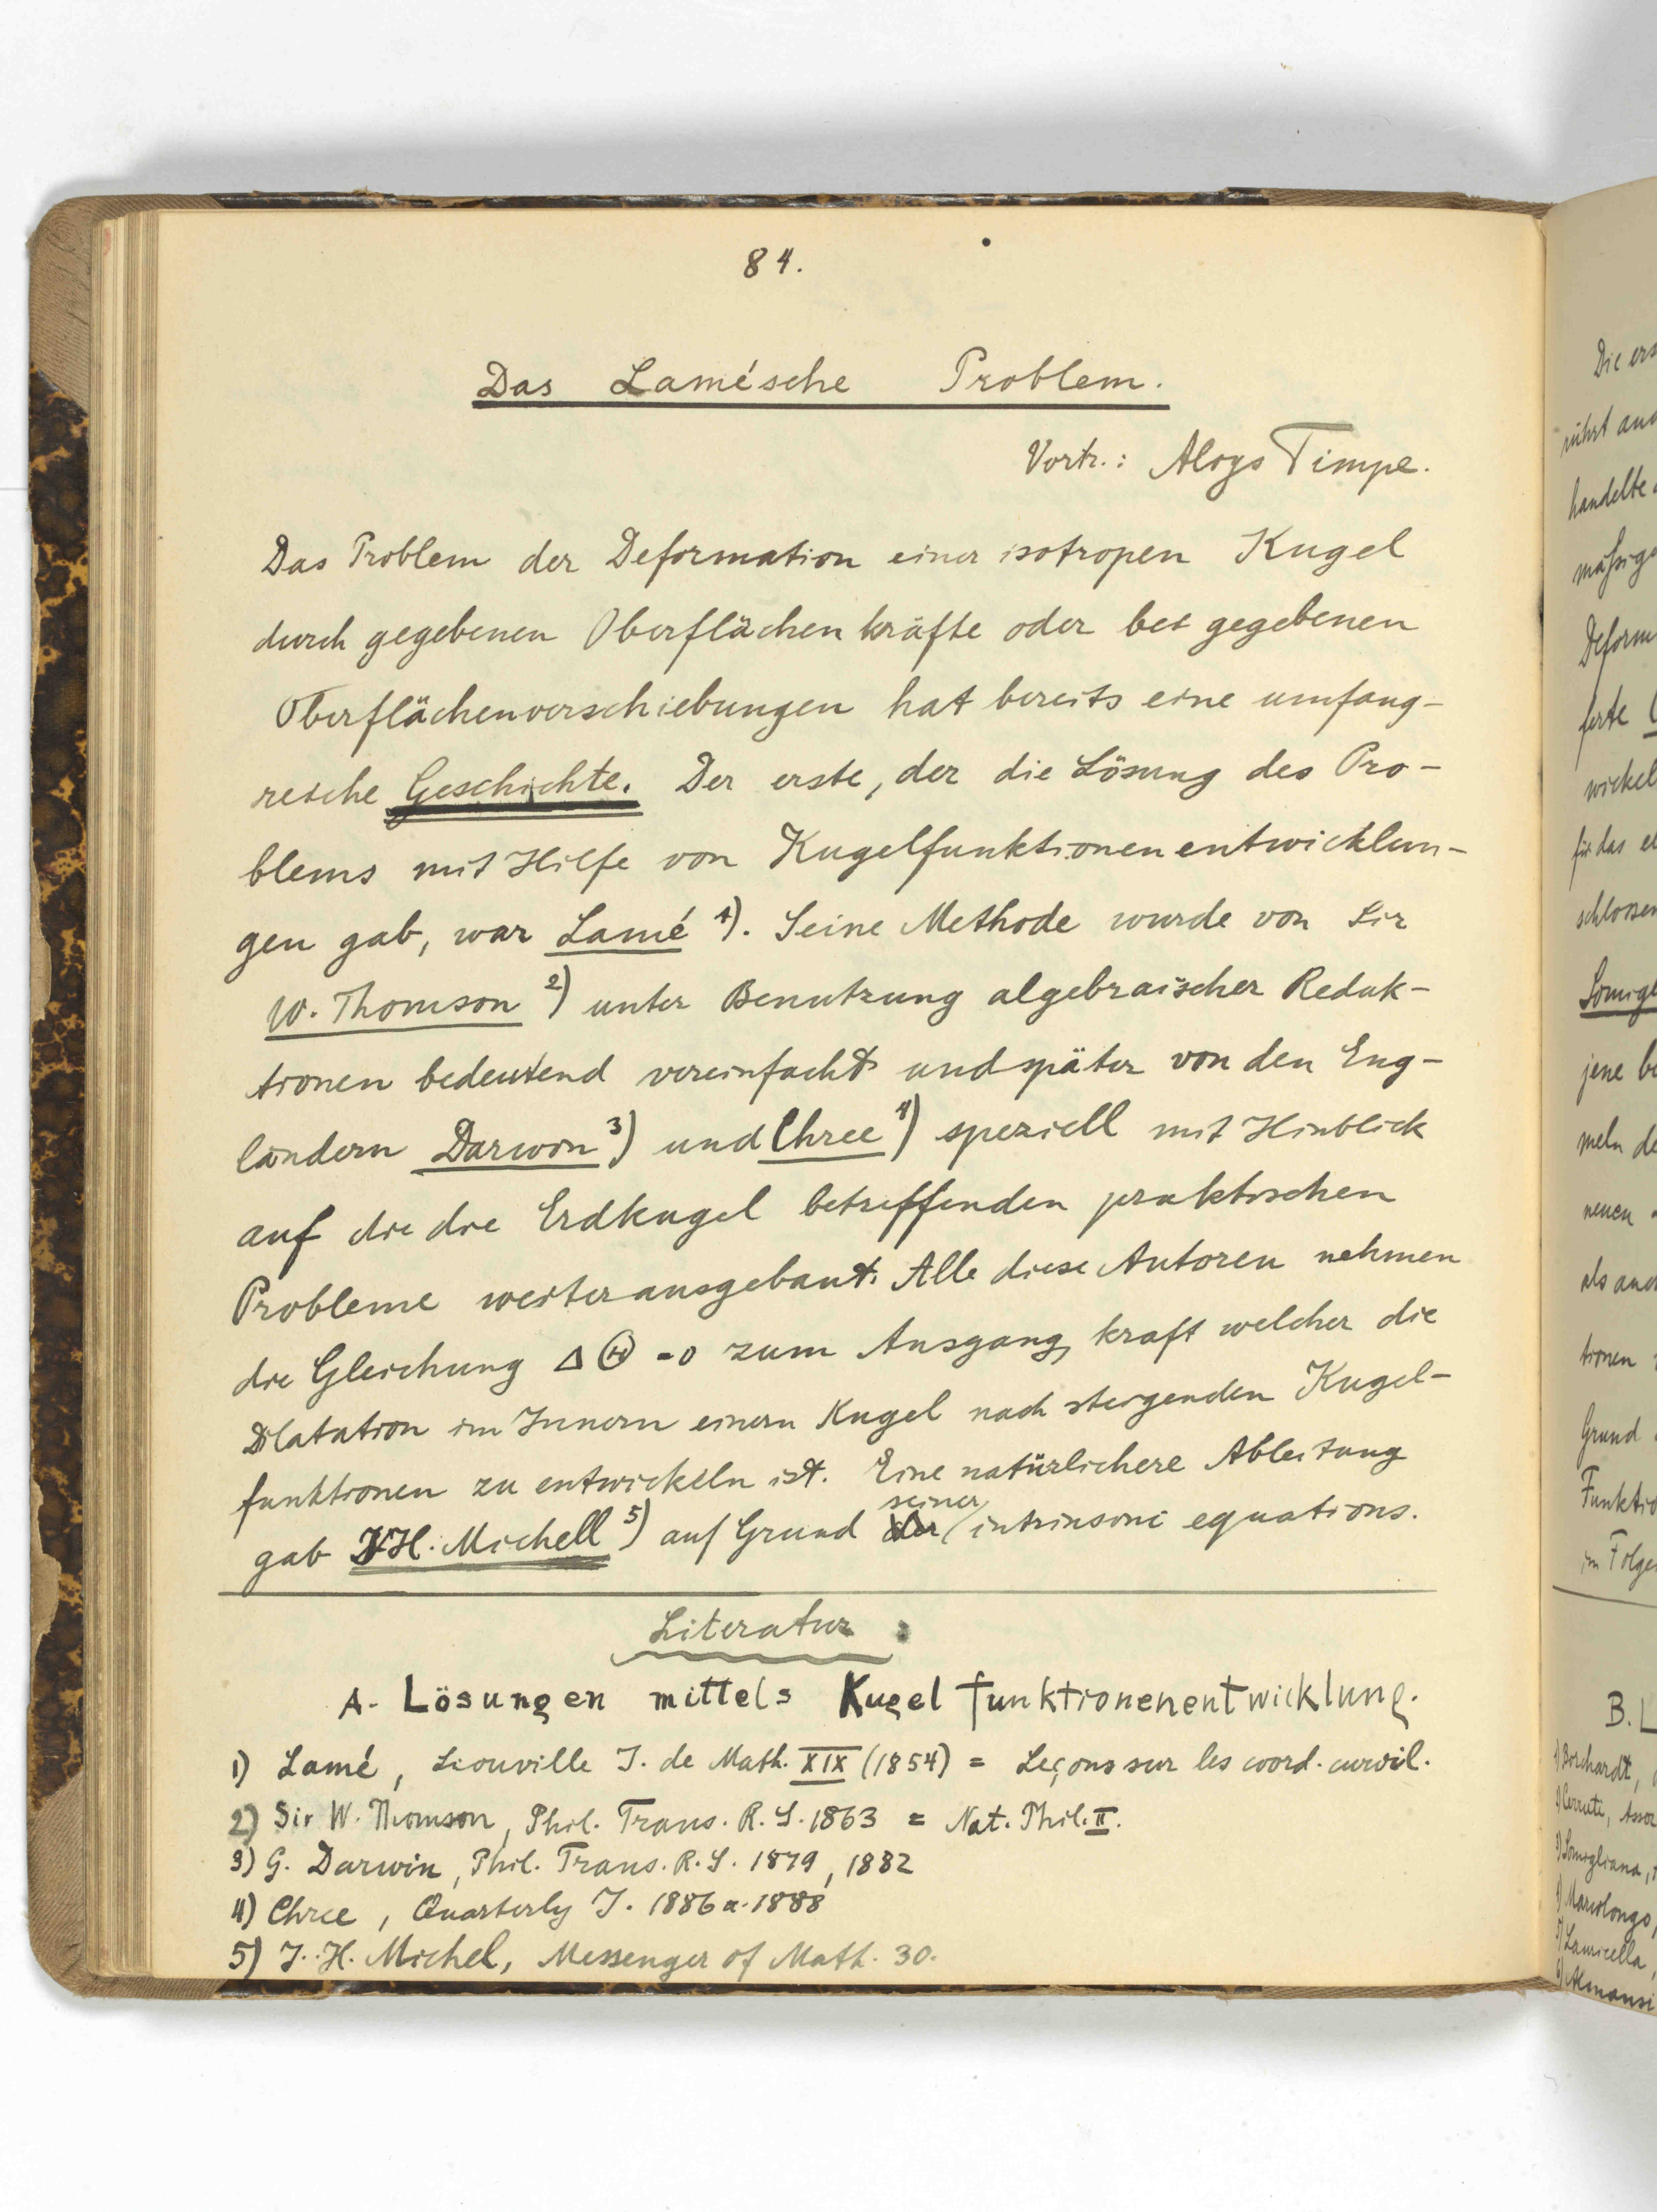 84.
Das Lamésche Problem.
Vortr.: Aloys Timpe.
Das Problem der Deformation einer isotropen Kugel
durch gegebenen Oberflächenkräfte oder bei gegebenen
Oberflächenverschiebungen hat bereits eine umfang-
reiche Geschichte. Der erste, der die Lösung des Pro-
blems mit Hilfe von Kugelfunktionenentwicklun-
gen gab, war Lamé 1). Seine Methode wurde von Sir
W. Thomson 2) unter Benutzung algebraischer Reduk-
tionen bedeutend vereinfacht und später von den Eng-
ländern Darwin 3) und Chree 4) speziell mit Hinblick
auf die die Erdkugel betreffenden praktischen
Probleme weiter ausgebaut. Alle diese Autoren nehmen
die Gleichung Δ Θ = 0 zum Ausgang, kraft welcher die
Dilatation im Innern einern Kugel nach steigenden Kugel-
funktionen zu entwickeln ist. Eine natürlichere Ableitung
gab J.H. Michell 5) auf Grund seiner intrinsoni equations.
Literatur:
A. Lösungen mittels Kugelfunktionenentwicklung.
1) Lamé, Liouville J. de Math. XIX (1854) = Leçons sur les coord. curvil.
2) Sir W. Thomson, Phil. Trans. R. S. 1863 = Nat. Phil. II.
3) G. Darwin, Phil. Trans. R. S. 1879, 1882
4) Chree, Quarterly J. 1886 u. 1888
5) J. H. Michel, Messenger of Math. 30.
Die ers
rührt
handelte
mäßig
Deform
ferte
wickel
für das el
schlossen
Somigl
jene be
meln de
neuen
als and
tionen
Grund
Funktio
im Folge
B. L
1) Borchardt,
2) Cerruti,
3) Somigliana,
4) Marcolongo,
5) Lauricella,
6) Almansi